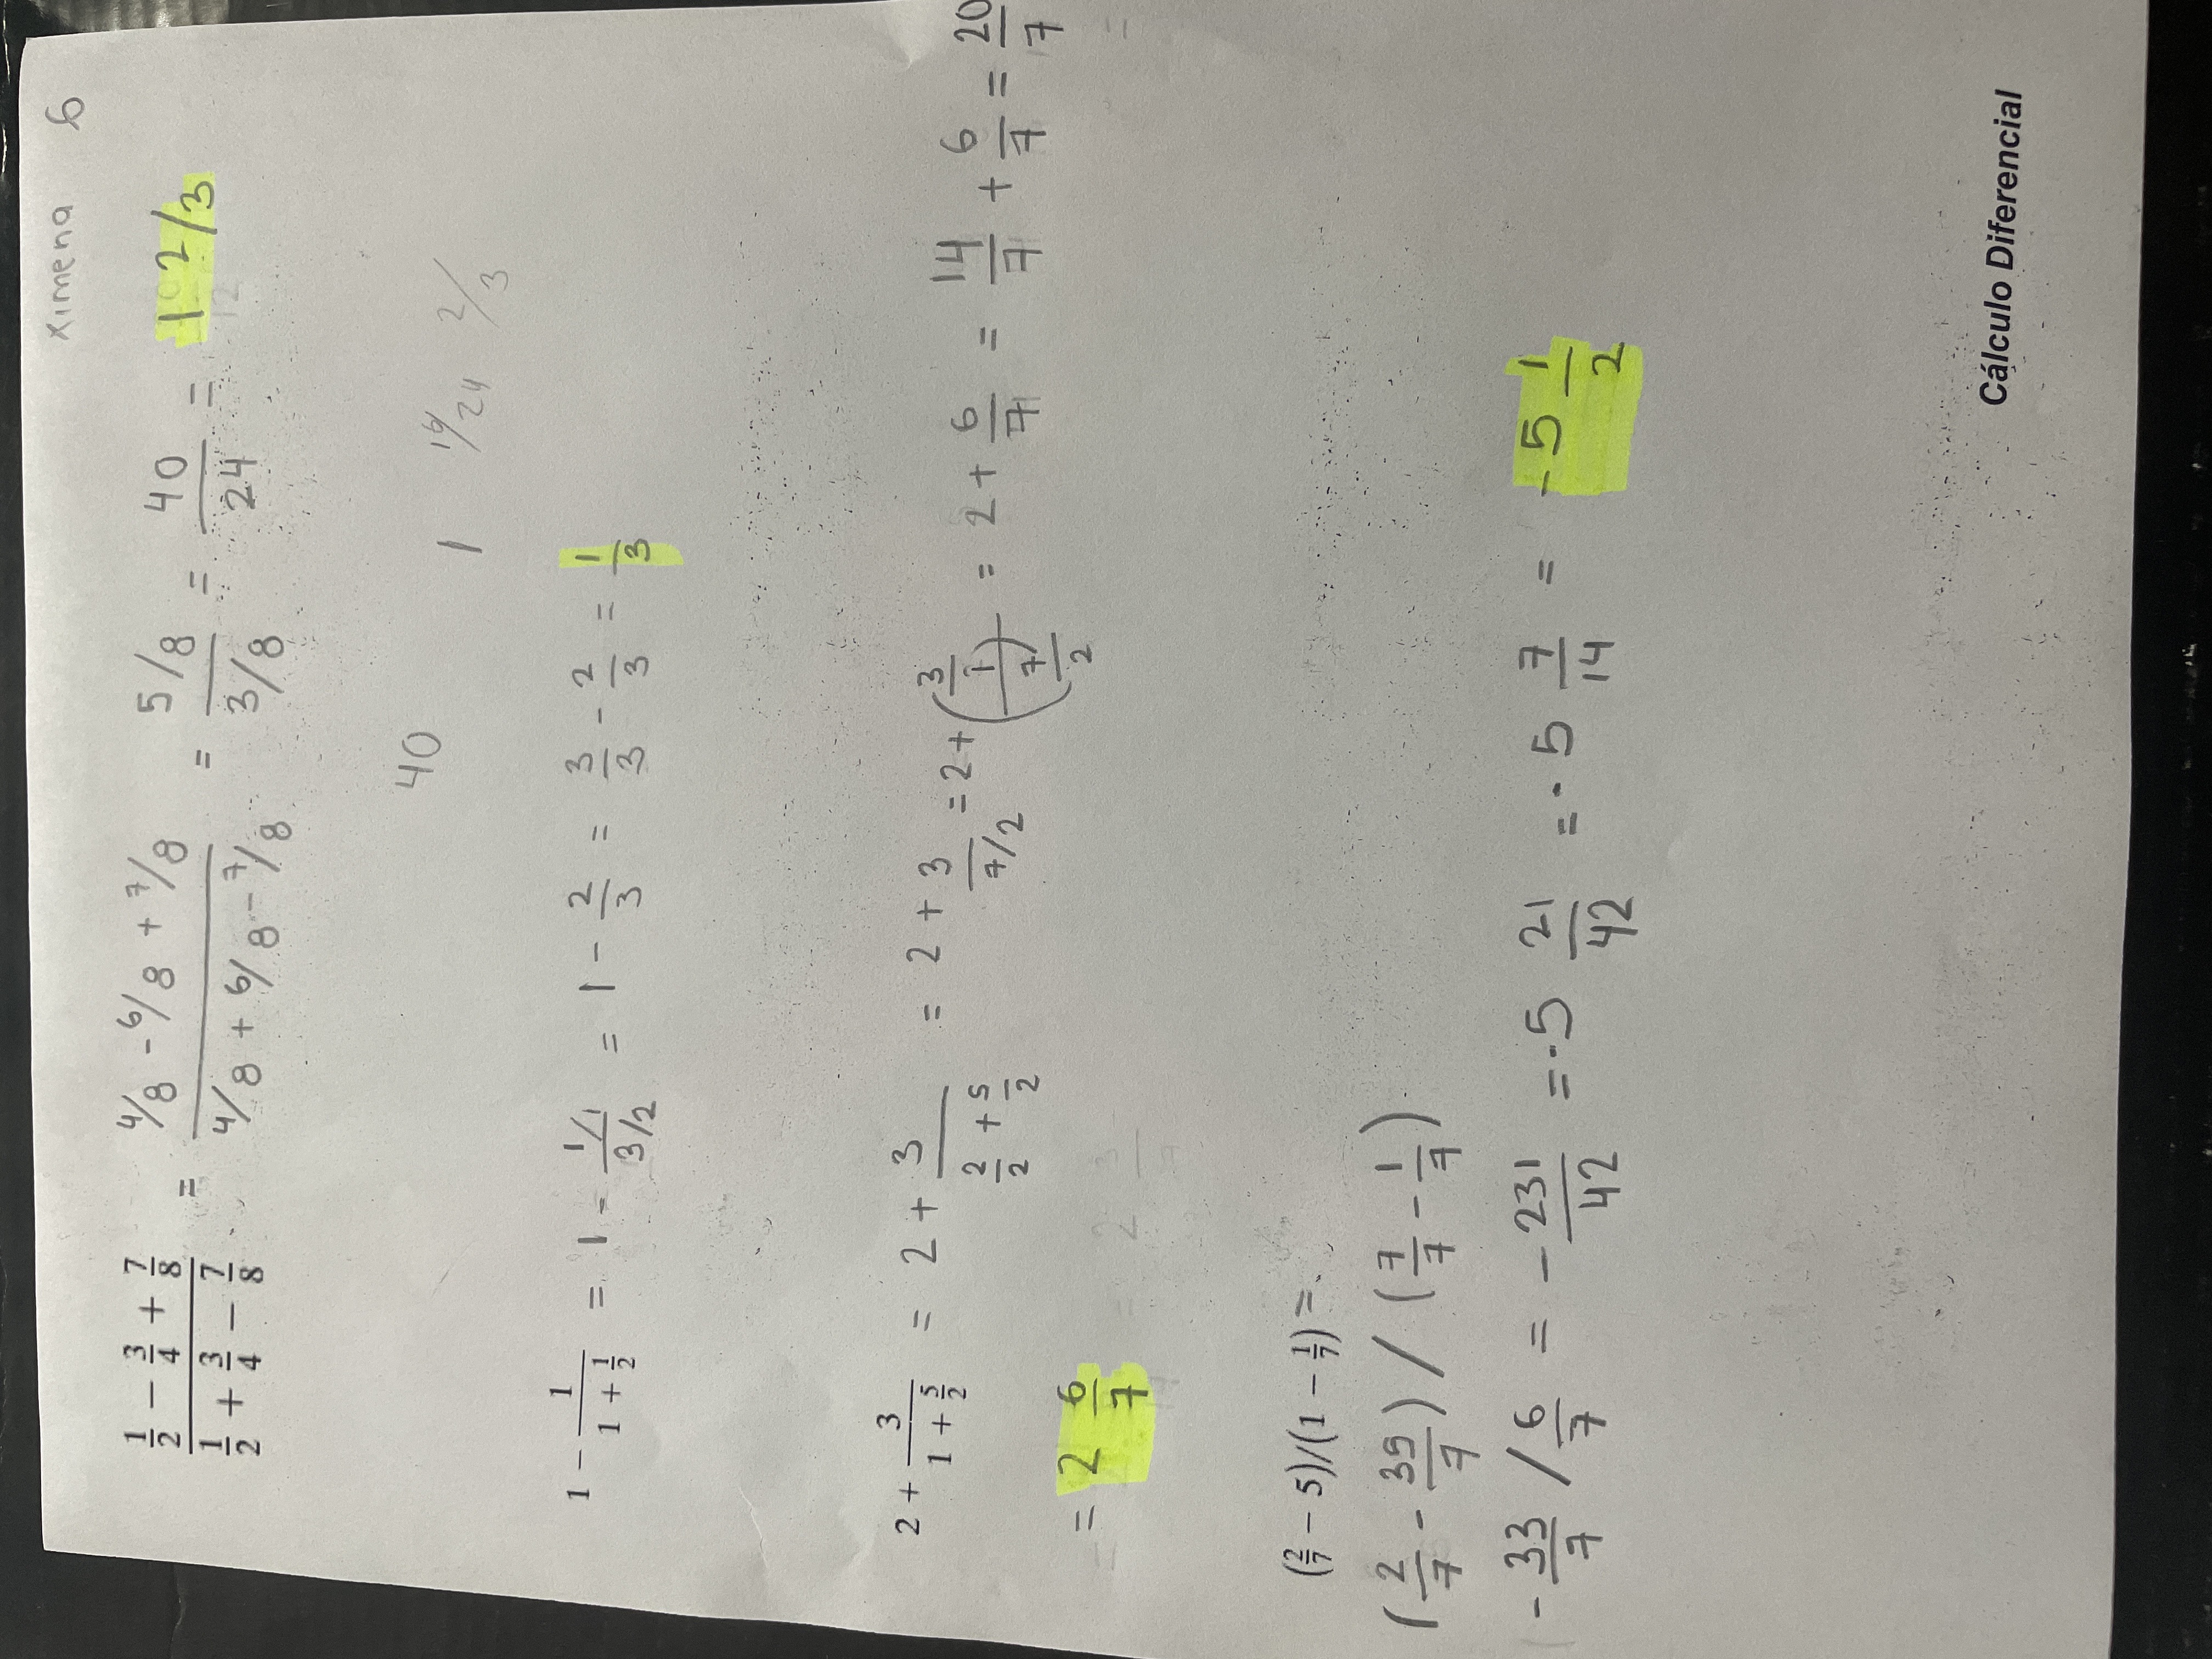 Ximena 6
1/2 − 3/4 + 7/8 / 1/2 + 3/4 − 7/8 = 4/8 - 6/8 + 7/8 / 4/8 + 6/8 - 7/8 = 5/8 / 3/8 = 40/24 = 1 2/3
40 1 16/24 2/3
1 − 1/(1 + 1/2) = 1 - 1/1 / 3/2 = 1 - 2/3 = 3/3 - 2/3 = 1/3
2 + 3/(1 + 5/2) = 2 + 3/(2/2 + 5/2) = 2 + 3/(7/2) = 2 + (3/1 / 7/2) = 2 + 6/7 = 14/7 + 6/7 = 20/7
= 2 6/7
(2/7 − 5)/(1 − 1/7) =
(2/7 - 35/7) / (7/7 - 1/7)
- 33/7 / 6/7 = - 231/42 = - 5 21/42 = - 5 7/14 = - 5 1/2
Cálculo Diferencial